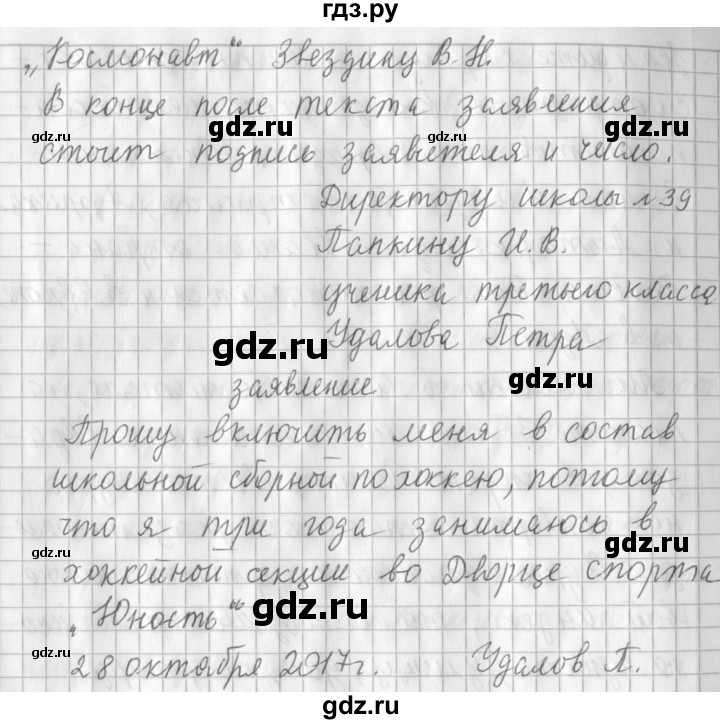 гдз.ру
„Космонавт“ Звездину В.Н.
В конце после текста заявления
стоит подпись заявителя и число.
Директору школы №39
Папкину И.В.
ученика третьего класса
Удалова Петра
заявление
Прошу включить меня в состав
школьной сборной по хоккею, потому
что я три года занимаюсь в
хоккейной секции во Дворце спорта
„Юность“
28 октября 2017г. Удалов П.
gdz.ru
gdz.ru
gdz.ru
gdz.ru
gdz.ru
gdz.ru
gdz.ru
gdz.ru
gdz.ru
gdz.ru
gdz.ru